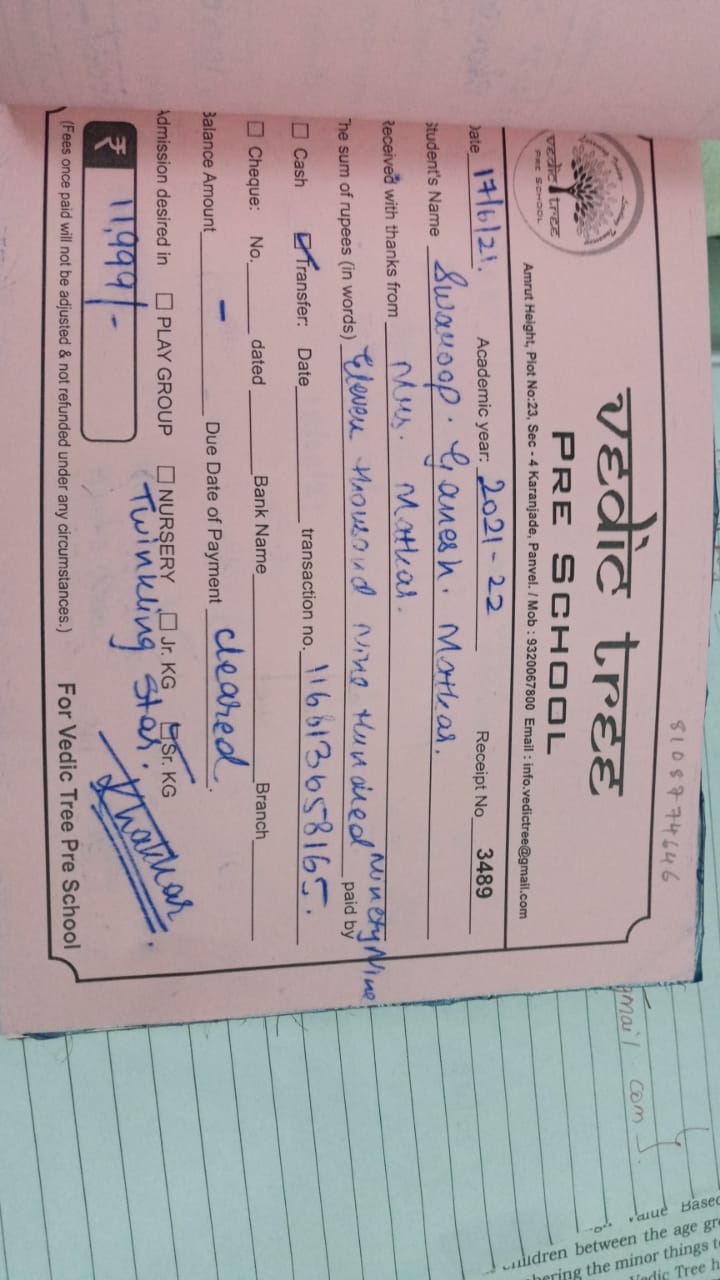 8108774646
vedic tree
PRE SCHOOL
vedic tree
PRE SCHOOL
Amrut Height, Plot No:23, Sec - 4 Karanjade, Panvel. / Mob : 9320067800 Email : info.vedictree@gmail.com
Date 17/6/21. Academic year: 2021-22 Receipt No 3489
Student's Name Swaroop. Ganesh. Matkar.
Received with thanks from Mrs. Matkar.
The sum of rupees (in words) Eleven thousand Nine Hundred Ninety Nine paid by
☐ Cash ☑ Transfer: Date transaction no. 116613658165.
☐ Cheque: No. dated Bank Name Branch
Balance Amount - Due Date of Payment cleared.
Admission desired in ☐ PLAY GROUP ☐ NURSERY ☐ Jr. KG ☑ Sr. KG
Twinkling Star.
₹ 11,999/-
(Fees once paid will not be adjusted & not refunded under any circumstances.) For Vedic Tree Pre School
gmail.com
Value Based
children between the age gr
hering the minor things t
Vedic Tree h